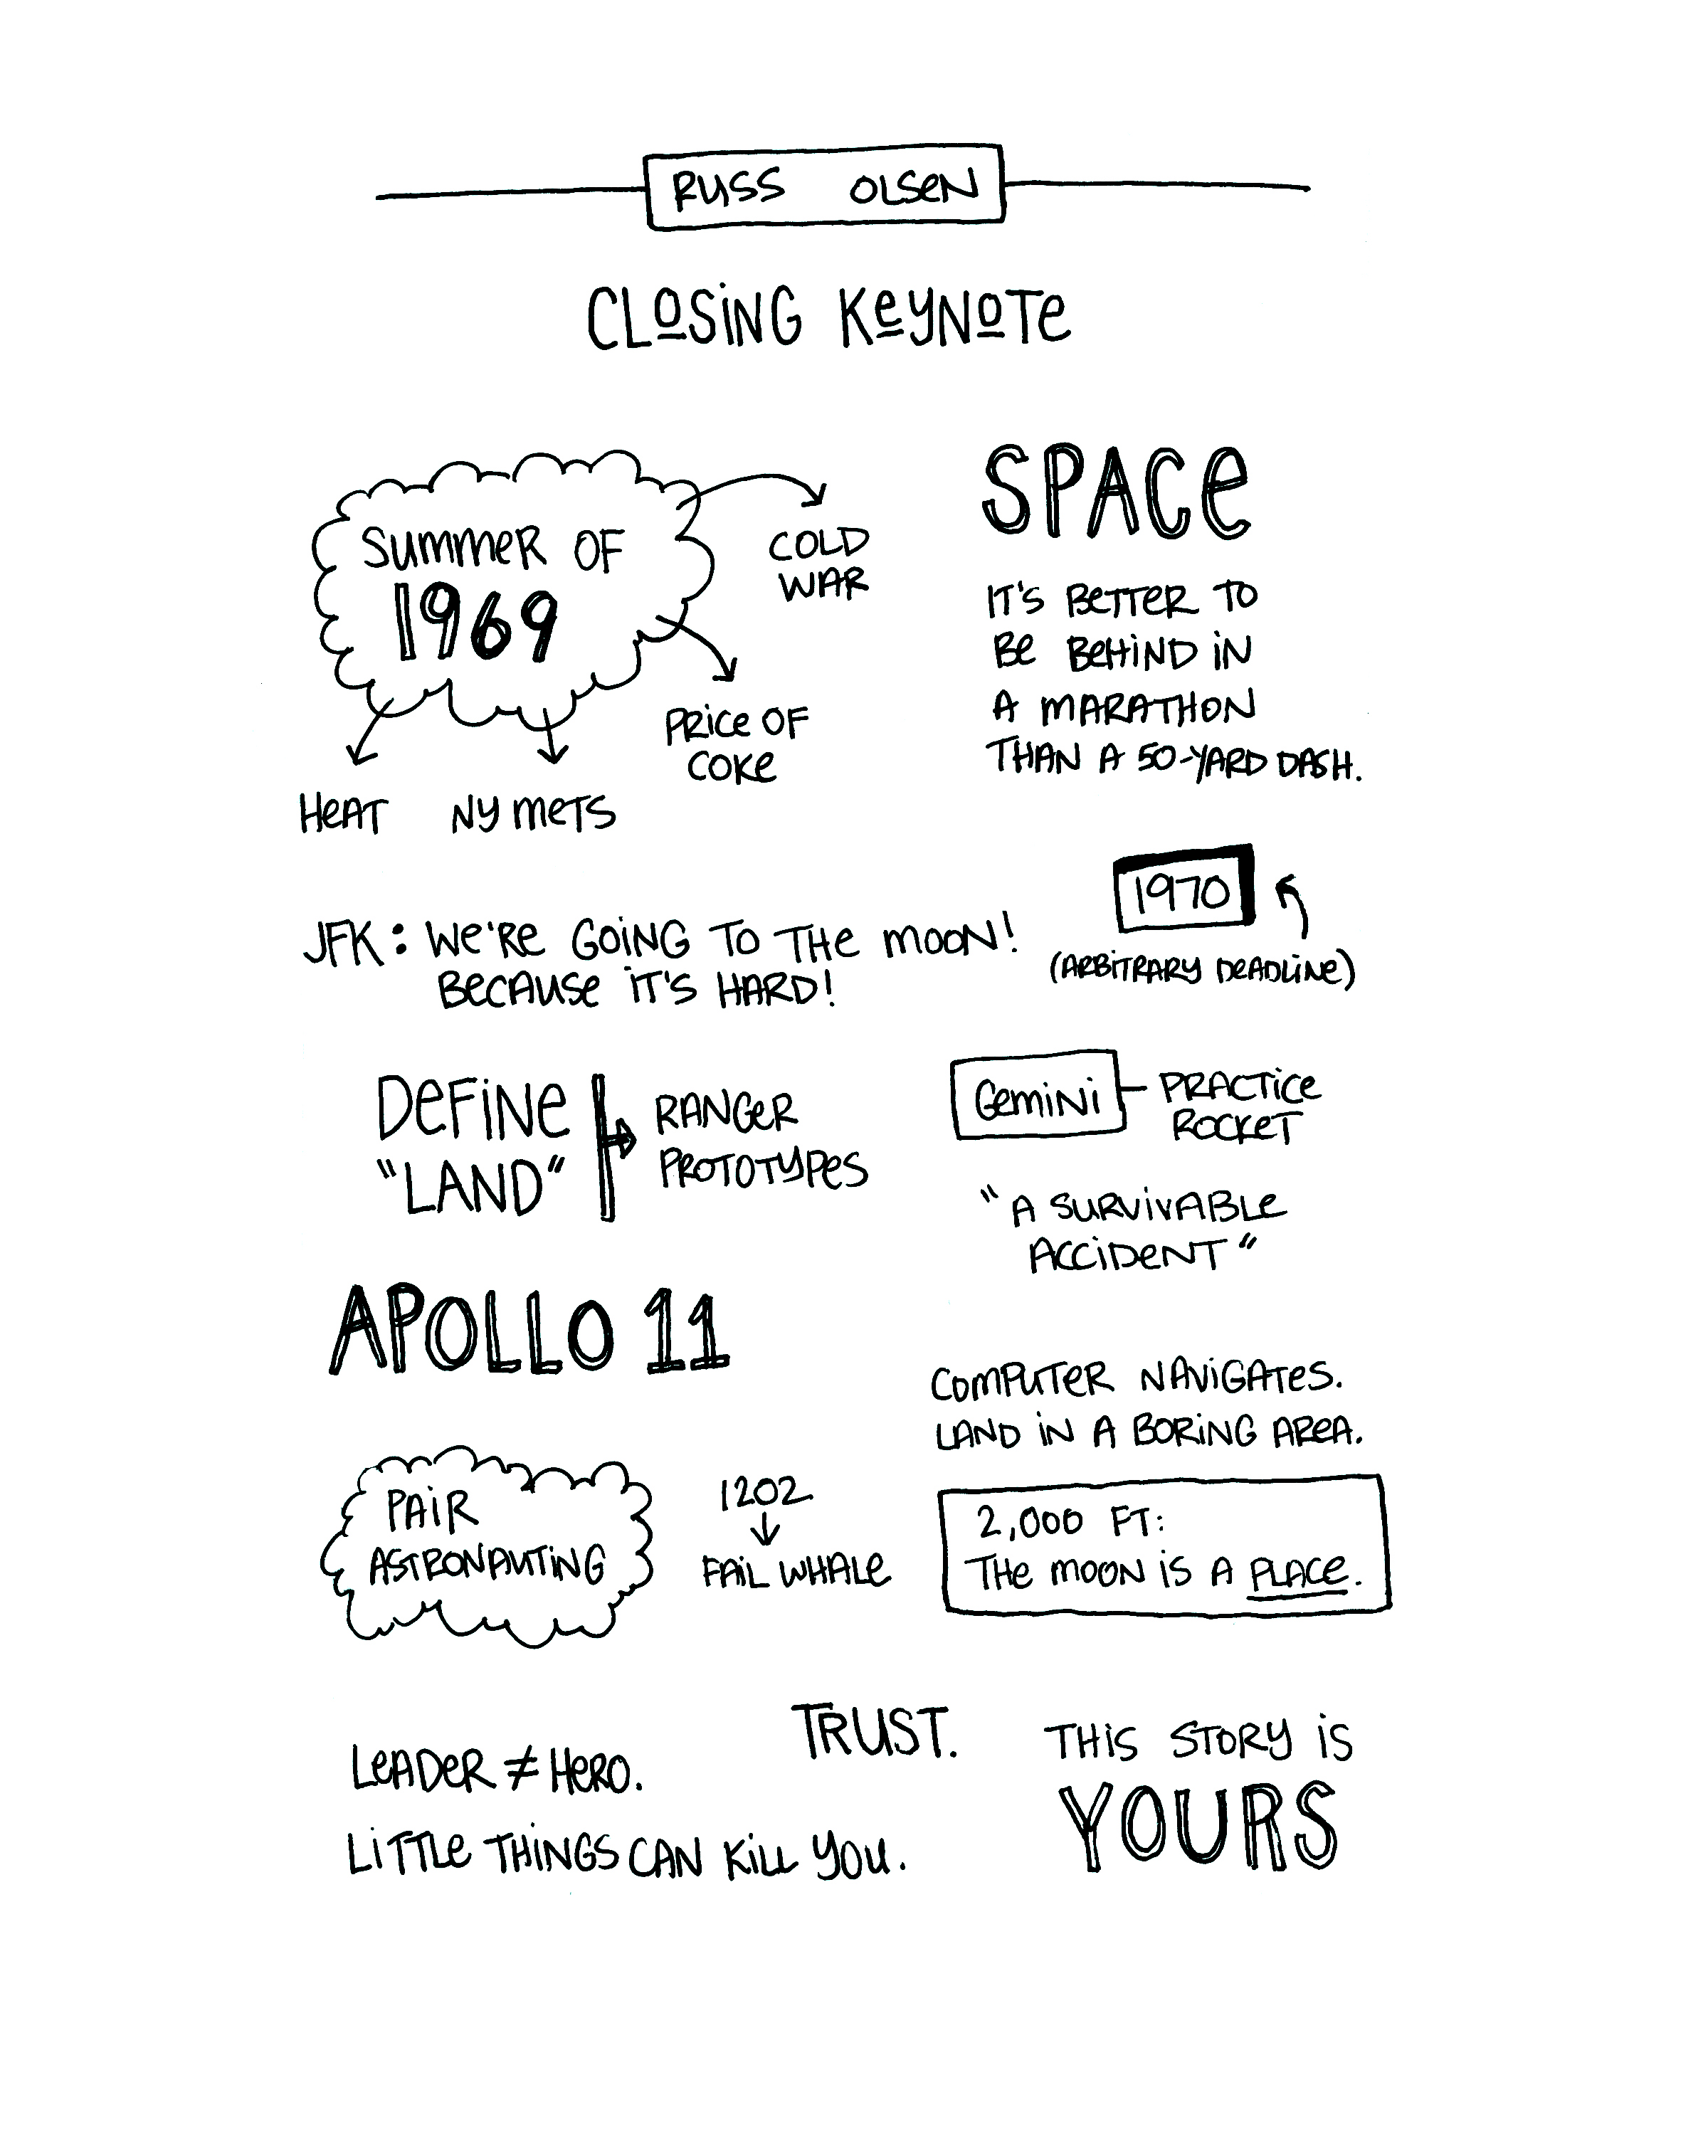 RUSS OLSEN
CLOSING KEYNOTE
SUMMER OF
1969
COLD
WAR
PRICE OF
COKE
HEAT
NY METS
SPACE
IT'S BETTER TO
BE BEHIND IN
A MARATHON
THAN A 50-YARD DASH.
JFK: WE'RE GOING TO THE MOON!
BECAUSE IT'S HARD!
1970
(ARBITRARY DEADLINE)
DEFINE
"LAND"
RANGER
PROTOTYPES
GEMINI
PRACTICE
ROCKET
"A SURVIVABLE
ACCIDENT"
APOLLO 11
COMPUTER NAVIGATES.
LAND IN A BORING AREA.
PAIR
ASTRONAUTING
1202
FAIL WHALE
2,000 FT:
THE MOON IS A PLACE.
LEADER ≠ HERO.
TRUST.
LITTLE THINGS CAN KILL YOU.
THIS STORY IS
YOURS